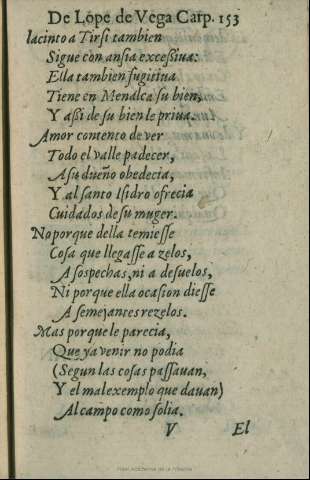 De Lope de Vega Carp. 153
Iacinto a Tirsi tambien
Sigue con ansia excessiua:
Ella tambien fugitiua
Tiene en Menalca su bien,
Y assi de su bien le priua.
Amor contento de ver
Todo el valle padecer,
A su dueño obedecia,
Y al santo Isidro ofrecia
Cuidados de su muger.
No porque della temiesse
Cosa que llegasse a zelos,
A sospechas, ni a desuelos,
Ni porque ella ocasion diesse
A semejantes rezelos.
Mas porque le parecia,
Que ya venir no podia
(Segun las cosas passauan,
Y el mal exemplo que dauan)
Al campo como solia.
V El